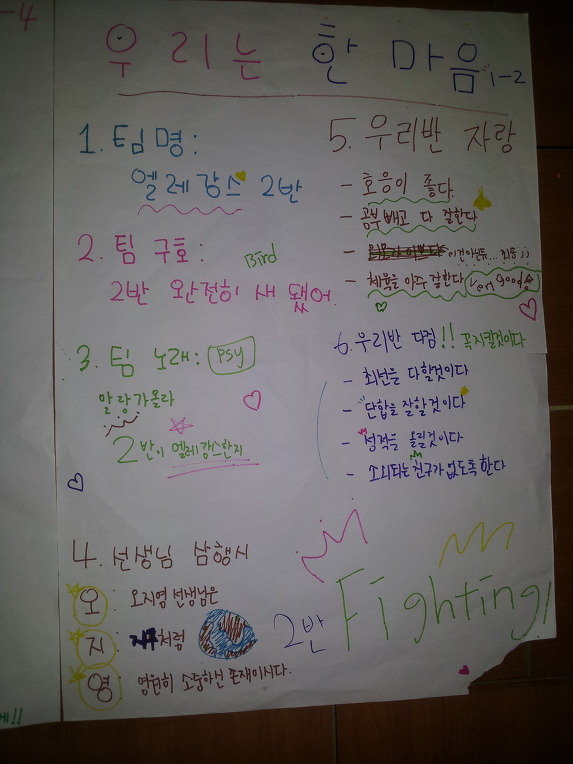 -4
우리는 한 마음 1-2
1. 팀명:
엘레강스 2반
2. 팀 구호:
Bird
2반 완전히 새 됐어
3. 팀 노래: psy
말랑가몰라
2반이 엘레강스한지
4. 선생님 삼행시
오 : 오지영 선생님은
지 : 처럼
영 : 영원히 소중하신 존재이시다.
5. 우리반 자랑
- 호응이 좋다.
- 공부 빼고 다 잘한다
- 이건아닌듯... 죄송;;
- 체육을 아주 잘한다 Very good
6. 우리반 다짐!! 꼭지킬것이다
- 최선을 다할것이다
- 단합을 잘할것이다
- 성적을 올릴것이다
- 소외되는 친구가 없도록 한다
2반 Fighting!
!!